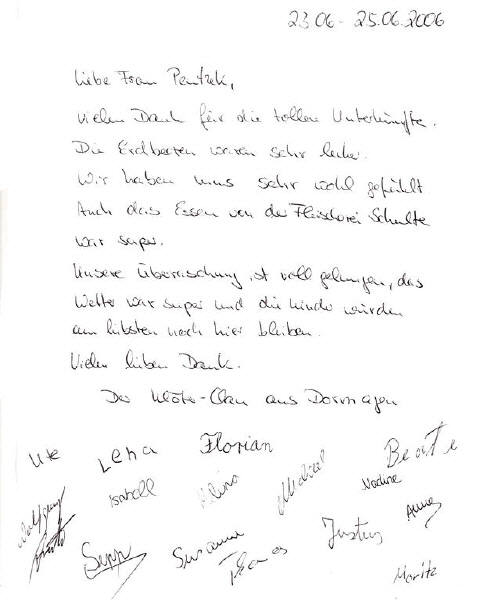 23.06 - 25.06.2006
Liebe Frau Pentzek,
vielen Dank für die tollen Unterkünfte.
Die Erdbeeren waren sehr lecker.
Wir haben uns sehr wohl gefühlt
Auch das Essen von der Fleischerei Schulte
war super.
Unsere Überraschung ist voll gelungen, das
Wetter war super und die Kinder würden
am liebsten noch hier bleiben.
Vielen lieben Dank.
Der Klöter-Clan aus Dormagen
Ute Lena Florian Beate
Wolfgang Isabell Alina Michael Nadine
Sepp Susanne Thomas Justus Anna
Moritz